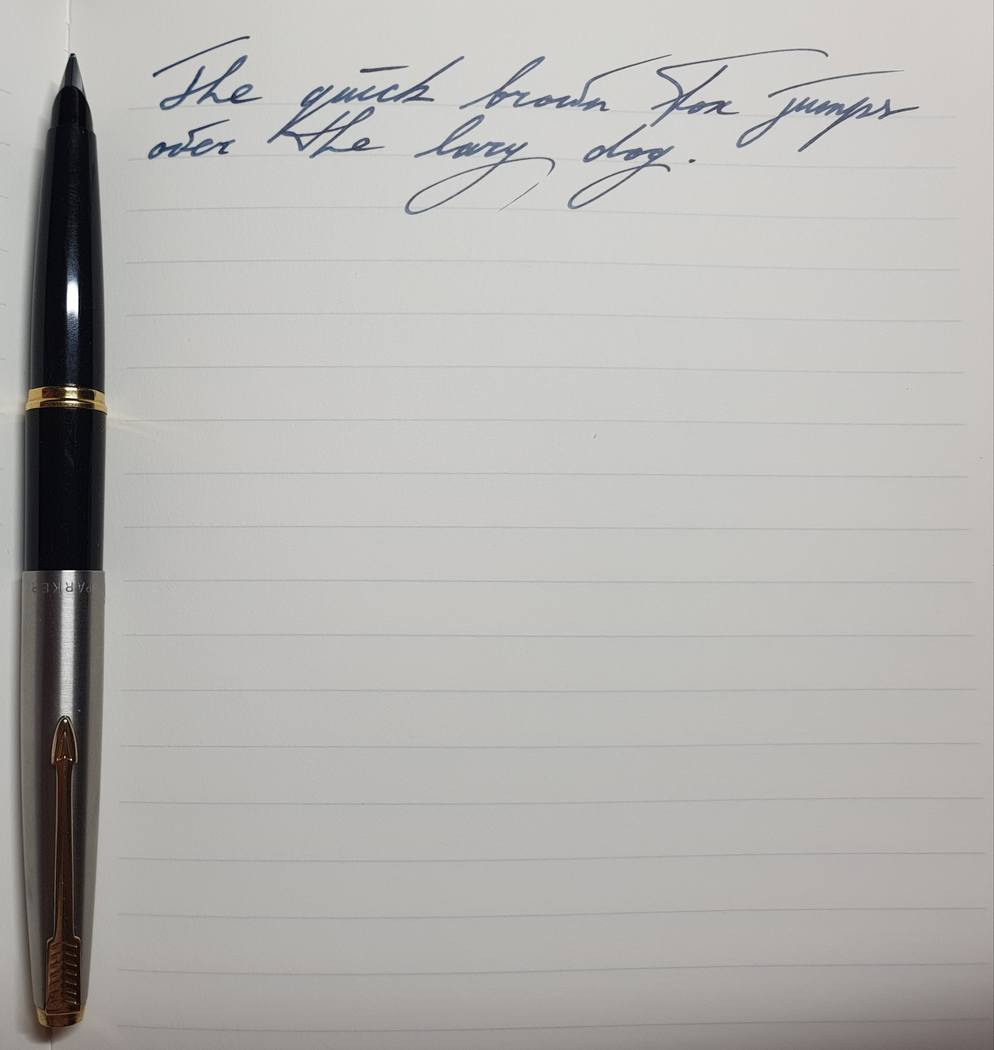 The quick brown fox jumps
over the lazy dog.
PARKER